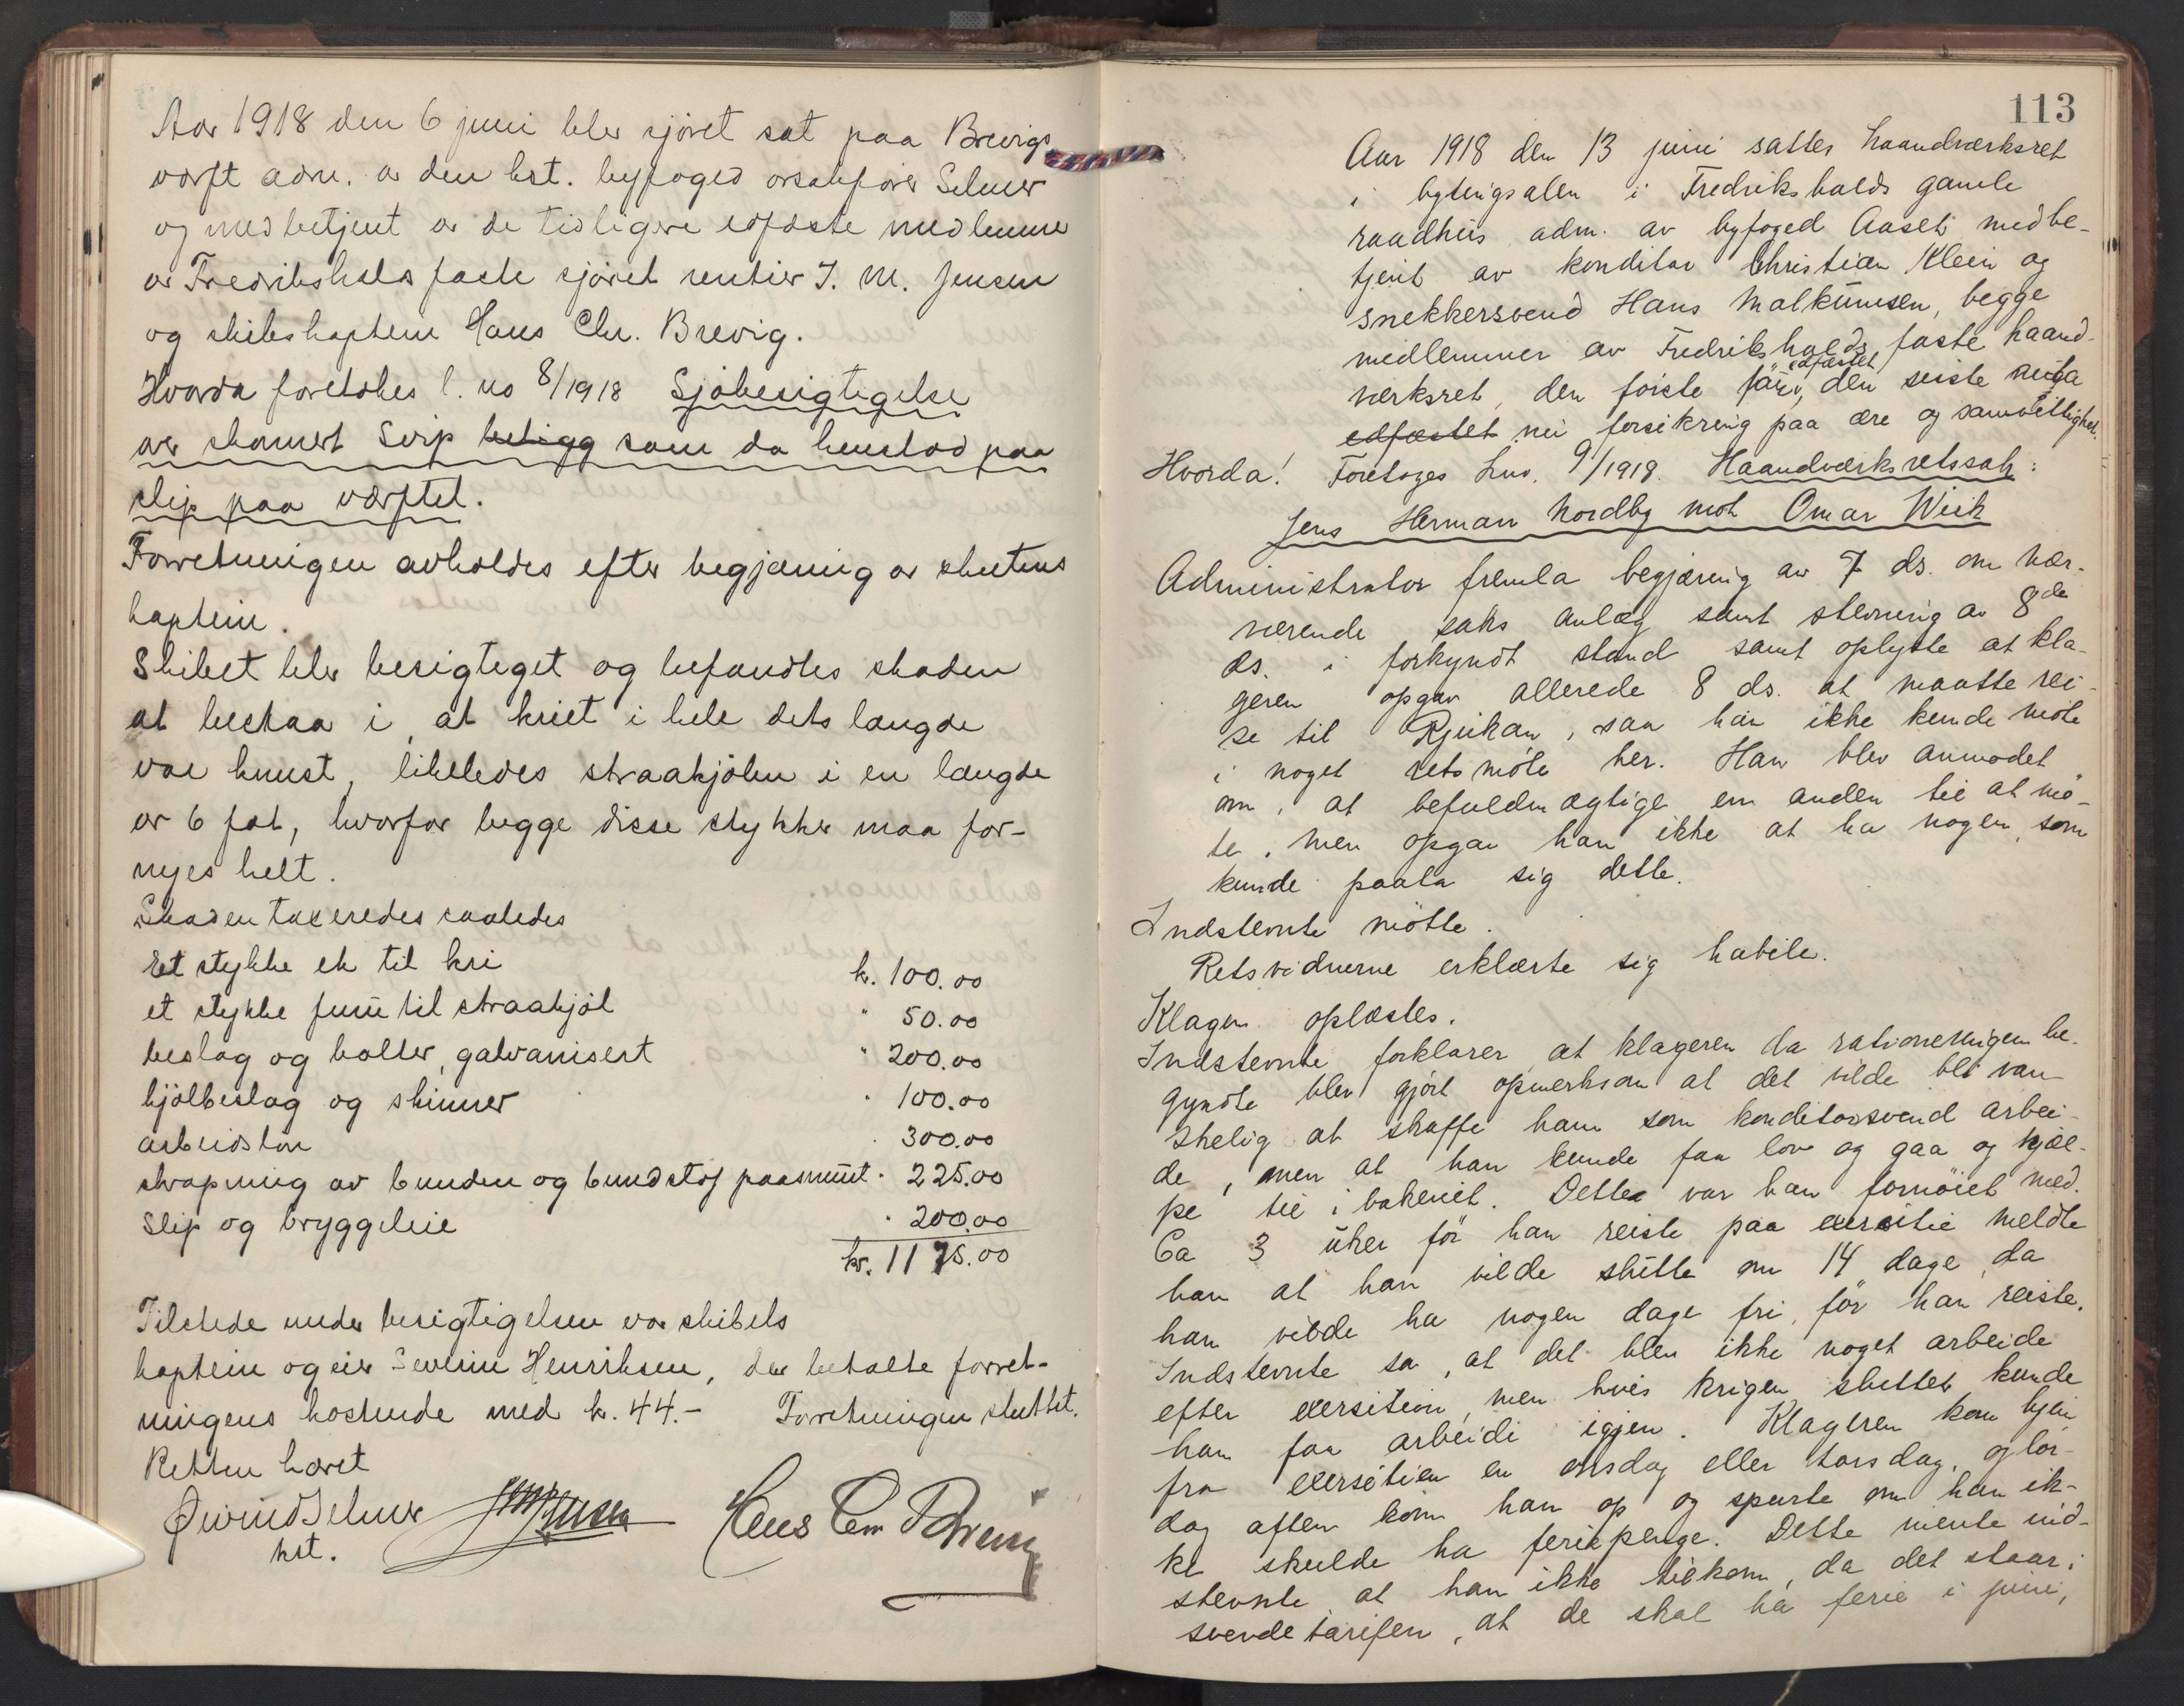 Aar 1918 den 6 juni blev sjøret sat paa Brevigs
værft adm. av den kst. byfoged orsakfører Selmer
og med betjent av de tidligere edfæste medlemmer
av Fredrikshalds faste sjøret rentier J. M. Jensen
og skibskaptein Hans Chr. Brevig.
Hvorda foretokes l. no 8/1918 Sjøbesigtigelse
av skonnert Svip beligg som da henstod paa
slip paa værftet.
Forretningen avholdes efter begjæring av skutens
kaptein.
Skibet blev besigtiget og befandtes skaden
at bestaa i, at kriet i hele dets længde
var knust, likeledes straakjølen i en længde
av 6 fot, hvorfor begge disse stykker maa for-
nyes helt.
Skaden taxeredes saaledes
Et stykke ek til kri kr. 100.00
et stykke furu til straakjøl " 50.00
beslag og bolter, galvanisert " 200.00
kjølbeslag og skinner " 100.00
arbeidsløn " 300.00
skrapning av bunden og bundstof paasmurt " 225.00
Slip og bryggeleie " 200.00
kr. 1175.00
Tilstede under besigtigelsen var skibets
kaptein og eier Severin Henriksen, der betalte forret-
ningens kostende med kr. 44.- Forretningen sluttet.
Retten hævet
Øivind Selmer JM Jensen Hans Chr Brevig
kst.
113
Aar 1918 den 13 juni sattes haandverksret
i bytingsalen i Fredrikshalds gamle
raadhus adm. av byfoged Aaset med be-
tjent av konditor Christian Klein og
snekkersvend Hans Malkumsen, begge
medlemmer av Fredrikshalds faste haand-
verksret, den første før edfæstet, den siste
edfæstet nu forsikring paa ære og samvittighet.
Hvorda! Foretoges Lno. 9/1918. Haandverksretssak:
Jens Herman Nordby mot Omar Wiik
Administrator fremla begjæring av 7 ds. om nær-
værende saks anlæg samt stevning av 8de
ds. i forkyndt stand samt oplyste at kla-
geren opgav allerede 8 ds. at maatte rei-
se til Rjukan, saa han ikke kunde møte
i noget retsmøte her. Han blev anmodet
om, at befuldmægtige en anden til at mø-
te, men opgav han ikke at ha nogen, som
kunde paata sig dette.
Indstevnte møtte.
Retsvidnerne erklærte sig habile.
Klagen oplæstes.
Indstevnte forklarer, at klageren da rationeringen be-
gyndte blev gjort opmerksom at det vilde bli van-
skelig at skaffe ham som konditorsvend arbei-
de, men at han kunde faa lov og gaa og hjæl-
pe til i bakeriet. Dette var han fornøiet med.
Ca 3 uker før han reiste paa exersitie meldte
han at han vilde slutte om 14 dage, da
han vilde ha nogen dage fri, før han reiste.
Indstevnte sa, at det blev ikke noget arbeide
efter exersitien, men hvis krigen sluttet kunde
han faa arbeide igjen. Klageren kom hjem
fra exersitien en onsdag eller torsdag, og lør-
dag aften kom han op og spurte om han ik-
ke skulde ha feriepenge. Dette mente ind-
stevnte at han ikke tilkom, da det staar i
svendetariffen, at de skal ha ferie i juni,